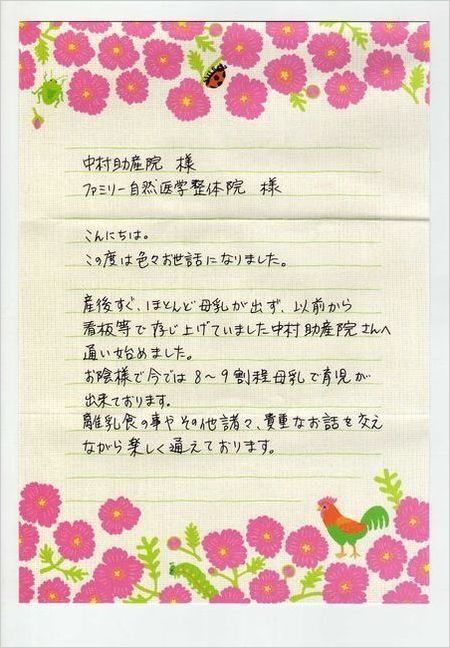 中村助産院 様
ファミリー自然医学整体院 様
こんにちは。
この度は色々お世話になりました。
産後すぐ、ほとんど母乳が出ず、以前から
看板等で存じ上げていました中村助産院さんへ
通い始めました。
お陰様で今では8～9割程母乳で育児が
出来ております。
離乳食の事やその他諸々、貴重なお話を交え
ながら楽しく通えております。